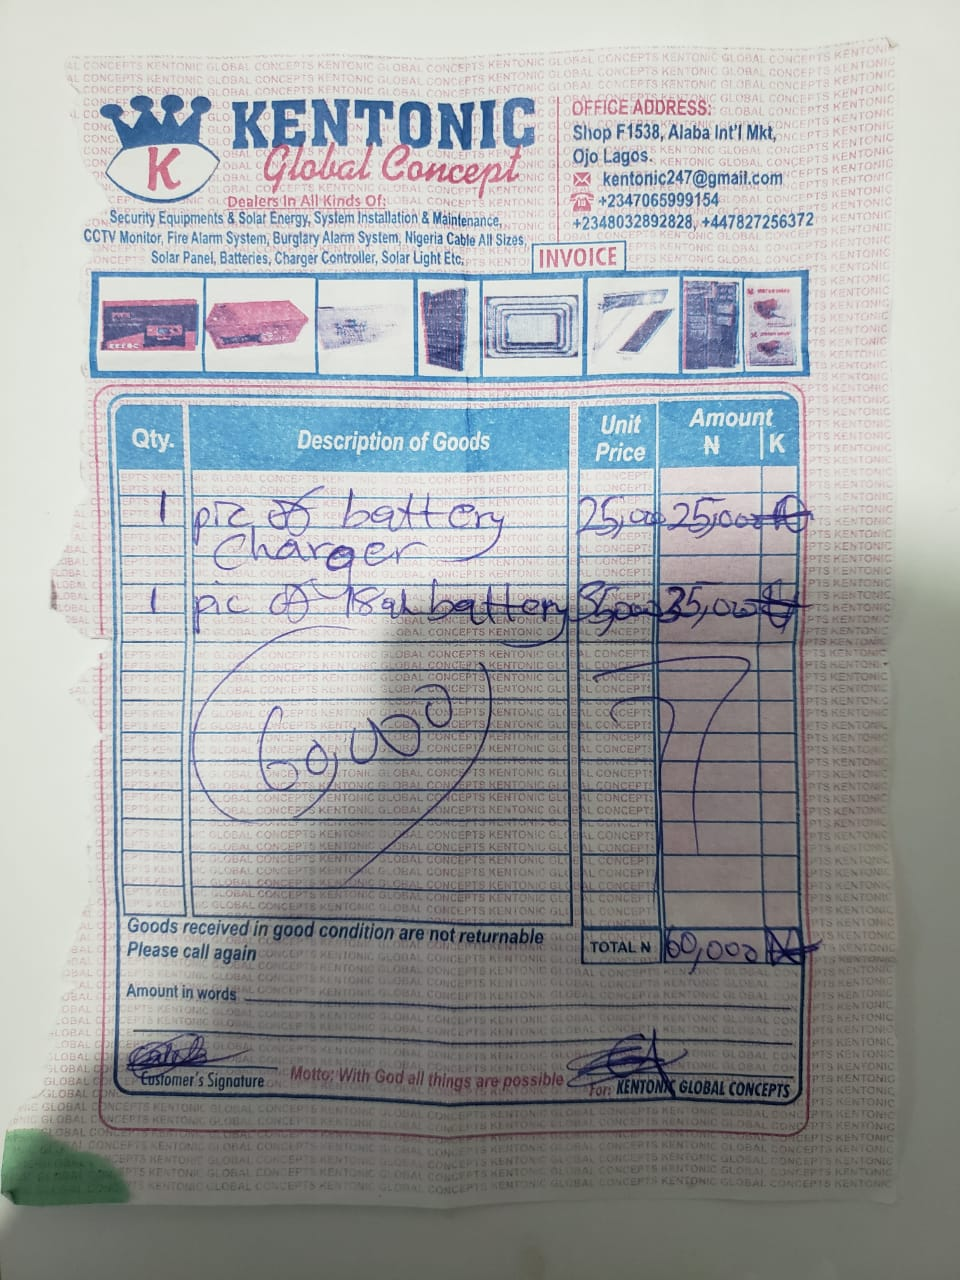 KENTONIC
Global Concept
K
Dealers In All Kinds Of:
Security Equipments & Solar Energy, System Installation & Maintenance,
CCTV Monitor, Fire Alarm System, Burglary Alarm System, Nigeria Cable All Sizes,
Solar Panel, Batteries, Charger Controller, Solar Light Etc.
OFFICE ADDRESS:
Shop F1538, Alaba Int'l Mkt,
Ojo Lagos.
kentonic247@gmail.com
+2347065999154
+2348032892828, +447827256372
INVOICE
Qty. Description of Goods Unit Price Amount ₦ K
1 pic of battery 25,000 25,000
Charger
1 pic of 18ah battery 35,000 35,000
60,000
Goods received in good condition are not returnable
Please call again
TOTAL N 60,000
Amount in words
Customer's Signature
Motto: With God all things are possible
For: KENTONIC GLOBAL CONCEPTS